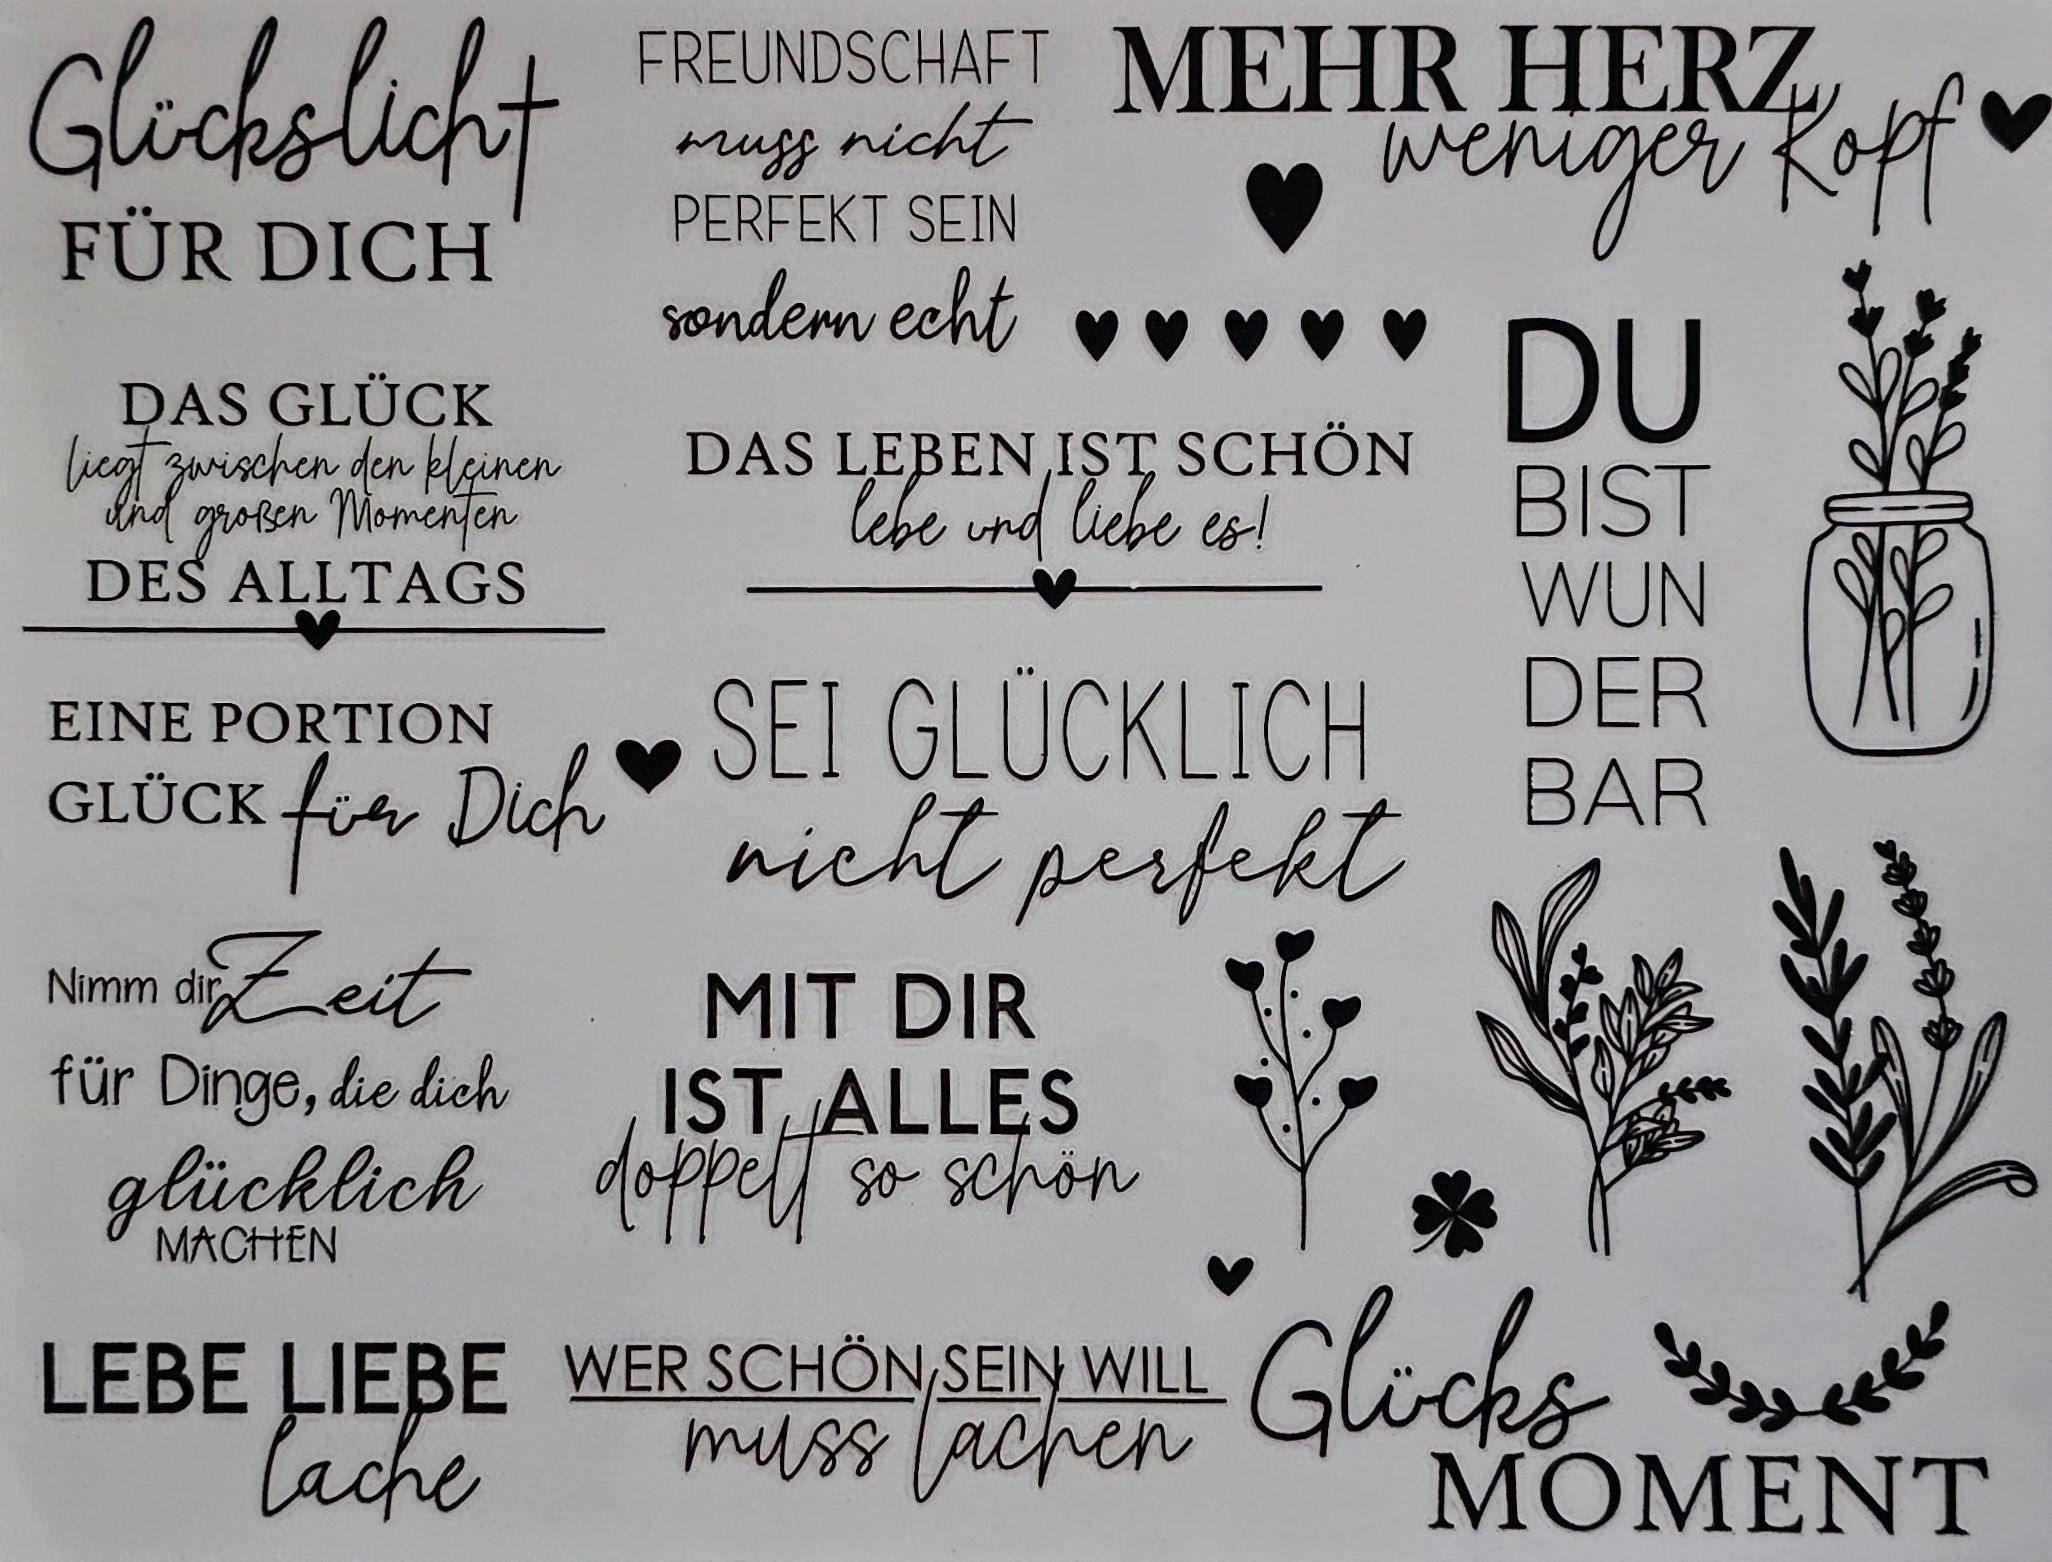 Glückslicht
FÜR DICH
FREUNDSCHAFT
muss nicht
PERFEKT SEIN
sondern echt
MEHR HERZ
weniger Kopf
DAS GLÜCK
liegt zwischen den kleinen
und großen Momenten
DES ALLTAGS
DAS LEBEN IST SCHÖN
lebe und liebe es!
DU
BIST
WUN
DER
BAR
EINE PORTION
GLÜCK für Dich
SEI GLÜCKLICH
nicht perfekt
Nimm dir Zeit
für Dinge, die dich
glücklich
MACHEN
MIT DIR
IST ALLES
doppelt so schön
LEBE LIEBE
lache
WER SCHÖN SEIN WILL
muss lachen
Glücks
MOMENT